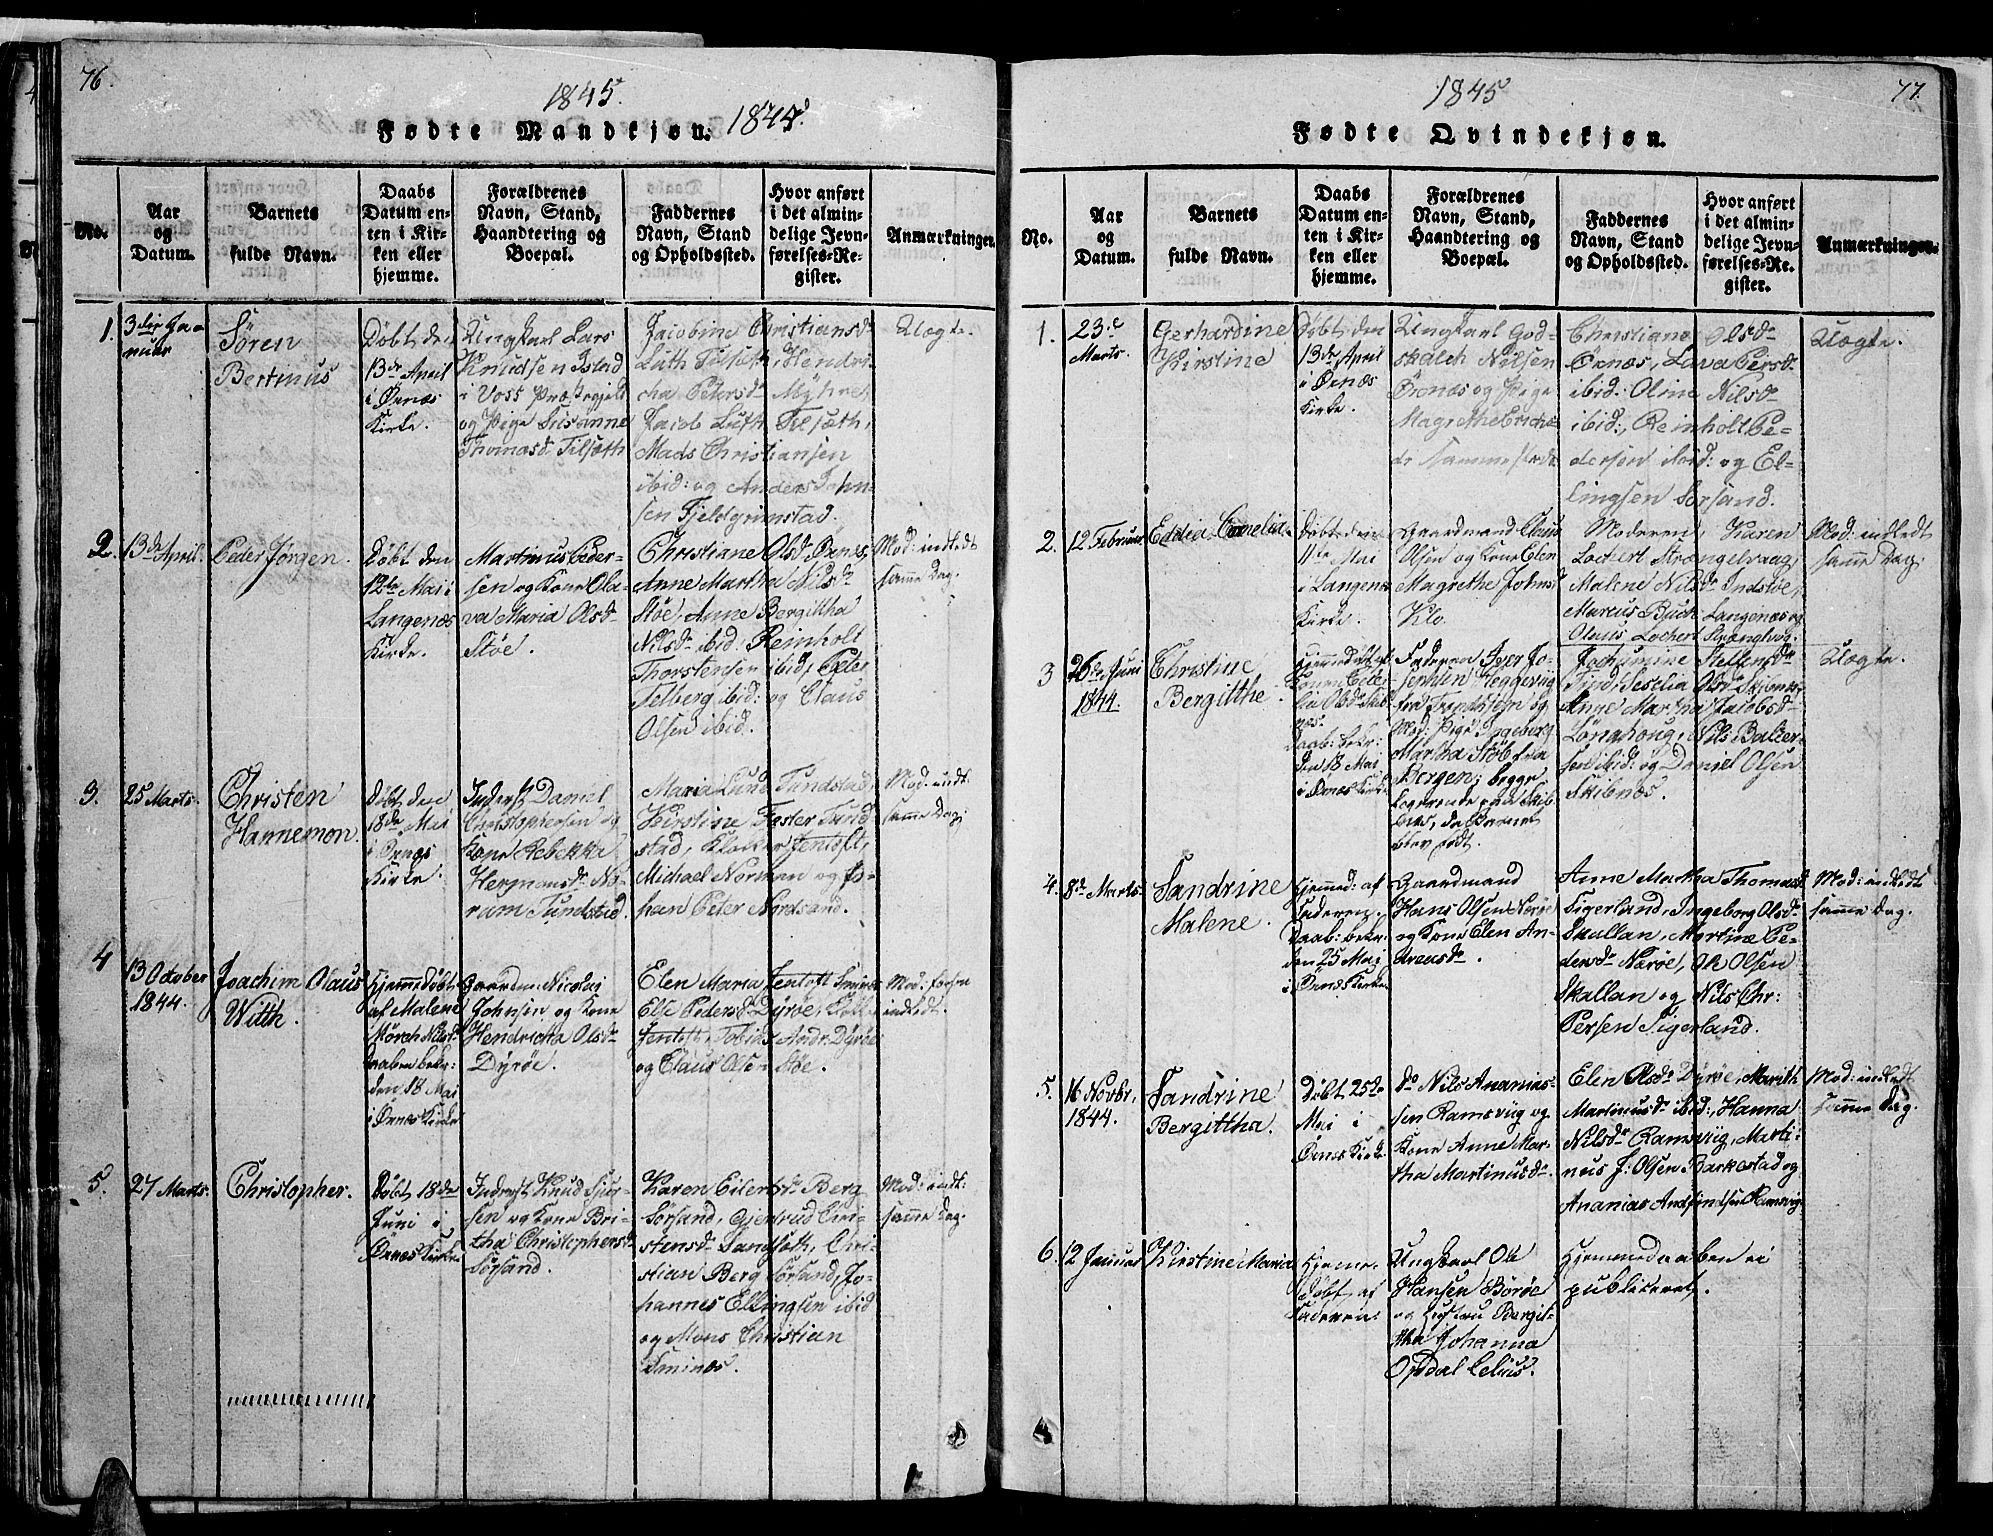 76.
1845.
Fødte Mandkjøn. 1845.
No.
Aar
og
Datum.
Barnets
fulde Navn.
Daabs
Datum en-
ten i Kir-
ken eller
hjemme.
Forældrenes
Navn, Stand,
Haandtering og
Boepæl.
Faddernes
Navn, Stand
og Opholdssted.
Hvor anført
i det almin-
delige Jevn-
førelses-Re-
gister.
Anmærkninger.
1.
3die Ja-
nuar
Sören
Bertinus
Döbt den
13de April
i Örnæs
Kirke.
Ungkarl Lars
Knudsen Istad
i Voss Præstegjeld
og Pige Susanne
Thomasdr Tilsæth
Jacobine Christiansdr
Luth Tilsæth, Hendri-
cha Petersdr Myhre,
Jacob Luth Tilsæth,
Mads Christiansen
ibid: og Anders John-
sen Fjeldgrimstad.
Uægte.
2.
13de April.
Peder Jörgen.
Döbt den
12te Mai i
Langenæs
Kirke.
Martinus Peder-
sen og Kone Ola-
va Maria Olsdr
Stöe.
Christiane Olsdr Örnes,
Anne Martha Nilsdr
Stöe, Anne Bergittha
Nilsdr ibid: Reinholt
Thorstensen ibid, Peter
Felberg ibid: og Claus
Olsen ibid.
Mod: indledt
samme Dag.
3.
25 Marts.
Christen
Hannemon.
Döbt den
18de Mai
i Örnæs
Kirke.
Inderst Daniel
Christophersen og
Kone Rebekka
Hermansdr No-
rum Tundstad.
Maria Lund Tundstad,
Kirstine Fester Tund
stad, Klokker Jentoft,
Michael Norman og Jo-
han Peter Nordsand.
Mod: indt:
samme Dag.
4
13 October
1844.
Joachim Olaus
Witth.
Hjemmedöbt
af Malene
Mörch Nilsdr
Daaben bekr:
den 18 Mai
i Örnes Kirke
Gaardm. Nicolai
Johnsen og Kone
Hendricha Olsdr
Dyröe.
Elen Maria Jentoft
Else Pedersdr Dyröe, Klokker
Jentoft, Tobias Andr: Dyröe
og Claus Olsen Stöe.
Mod. forhen
indledt.
5.
27 Marts.
Christopher.
Döbt 18de
Juni i
Örnes Kirke
Inderst Knud Sjur-
sen og Kone Bri-
tha Christophersdr
Sörsand.
Karen Eilertsdr Berg
Sörsand, Gjertrud Chri-
stensdr Sandsæth, Chri-
stian Berg Sörsand, Jo-
hannes Ellingsen ibid
og Mons Christian
Sminæs.
Mod: indt:
samme Dag.
77.
1845
Fødte Qvindekjøn.
No.
Aar
og
Datum.
Barnets
fulde Navn.
Daabs
Datum en-
ten i Kir-
ken eller
hjemme.
Forældrenes
Navn, Stand,
Haandtering og
Boepæl.
Faddernes
Navn, Stand
og Opholdssted.
Hvor anført
i det almin-
delige Jevn-
førelses-Re-
gister.
Anmærkninger.
1.
23.
Marts.
Gerhardine
Kirstine
Döbt den
13de April
i Örnæs
Kirke.
Ungkarl God-
skalch Nilsen
Örnæs og Pige
Magrethe Erichs-
dr samme Sted
Christiane Olsdr
Örnæs, Lava Persdr
ibid: Oline Nilsdr
ibid:, Reinholt Pe-
dersen ibid: og El-
lingsen Sörsand.
Uægte.
2.
12 Februar
Eddia Cornelia.
Döbt den
11te Mai
i Langenæs
Kirke.
Gaardmand Claus
Olsen og Kone Elen
Magrethe Johnsdr
Klo.
Moderen, Karen
Lochert Strængelvaag,
Malene Nilsdr Indstöe,
Marcus Buch Langenæs og
Olaus Lochert Strænglvag.
Mod: indledt
samme Dag.
3
26de Juni
1844.
Christine
Bergitthe.
Hjemmedöbt af
Konen Ceci-
lia Olsdr Skib-
næs.
Daab: bekr:
den 18 Mai
i Örnæs Kirke
Faderen Iver Jo-
sephsen Heggevig
fra Trondhjem og
Mod: Pige Ingeborg
Martha Stöle fra
Bergen; begge
Logerende paa Skib-
næs, da Barnet
blev födt.
Jochumine Steffensdr
Tind, Seselia Olsdr Skibnæs,
Anne Martha Jacobsdr
Lönghoug, Nils Balzer-
sen ibid: og Daniel Olsen
Skibnæs.
Uægte.
4.
8de Marts.
Sandrine
Malene.
Hjemmed: af
Faderen,
Daab: bekr.
den 25 Mai
i Örnæs Kirke
Gaardmand
Hans Olsen Næröe
og Kone Elen An-
dreasdr.
Anne Martha Thomasdr
Tigerland, Ingeborg Olsdr
Skallan, Martine Pe-
dersdr Næröe, Ole Olsen
Skallan og Nils Chr:
Persen Tigerland.
Mod: indledt
samme Dag.
5.
16 Novbr,
1844.
Sandrine
Bergittha.
Döbt 25de
Mai i
Örnes Kirke
do Nils Ananias-
sen Ramsvig og
Kone Anne Mar-
tha Martinusdr.
Elen Olsdr Dyröe, Marith
Martinusdr ibid:, Hanna
Nilsdr Ramsvig, Marti-
nus J: Olsen Barkestad og
Ananias Andfindsen Ramsvig.
Mod: indledt
samme Dag.
6.
12 Januar
Kirstine Maria
Hjeme-
döbt af
Faderen.
Ungkarl Ole
Hansen Böröe
og Hustru Bergit-
tha Johanna
Opdal Celius.
Hjemmedaaben ei
publiceret.